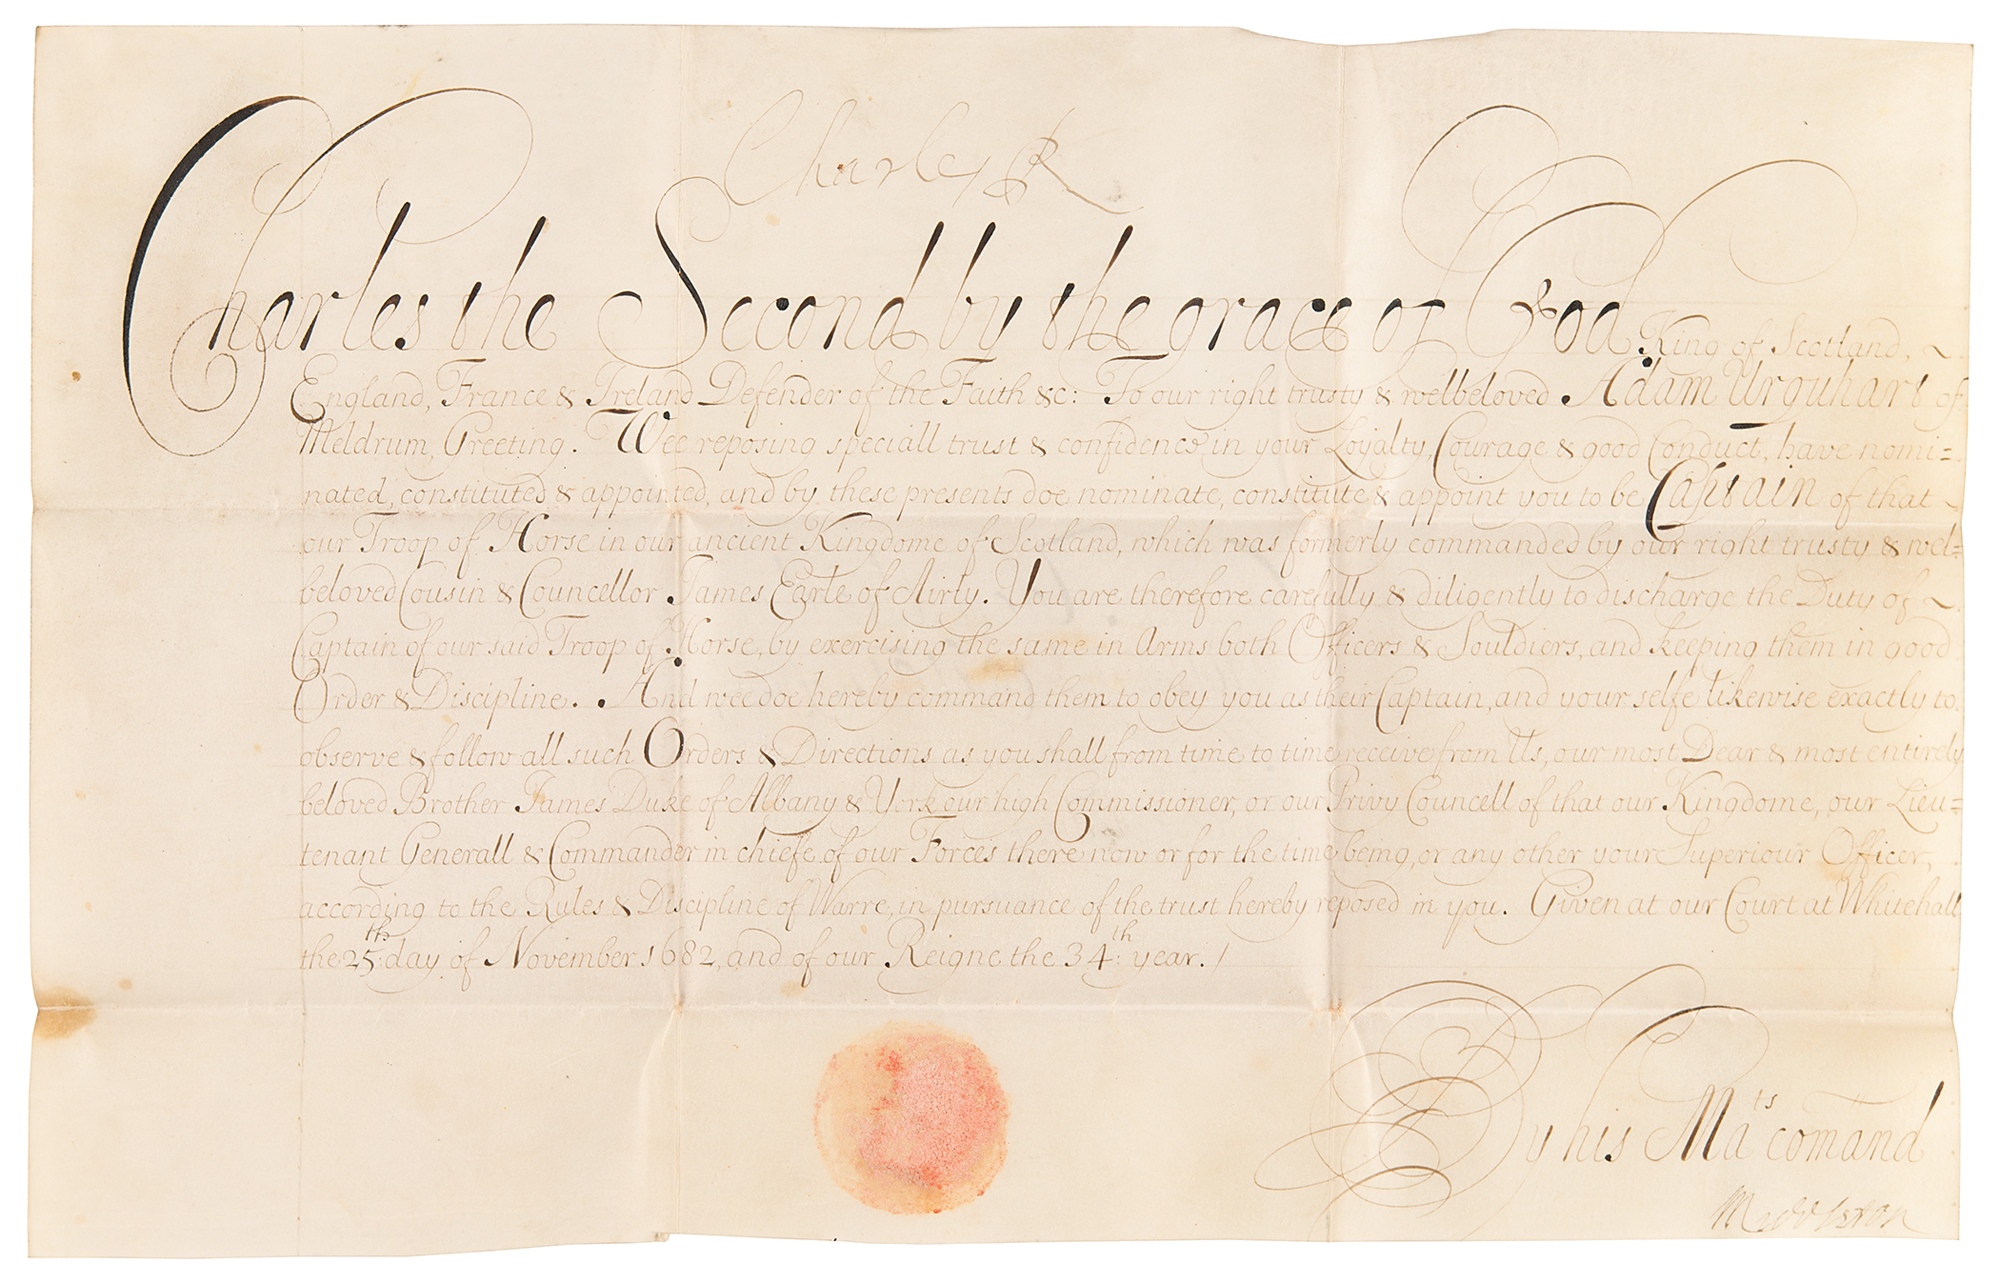 Charles R
Charles the Second by the grace of God King of Scotland,
England, France & Ireland Defender of the Faith &c: To our right trusty & welbeloved Adam Urquhart of
Meldrum, Greeting. Wee reposing speciall trust & confidence in your Loyalty, Courage & good Conduct, have nomi=
nated, constituted & appointed, and by these presents doe nominate, constitute & appoint you to be Captain of that
our Troop of Horse in our ancient Kingdome of Scotland, which was formerly commanded by our right trusty & wel=
beloved Cousin & Councellor James Earle of Airly. You are therefore carefully & diligently to discharge the Duty of
Captain of our said Troop of Horse, by exercising the same in Arms both Officers & Souldiers, and keeping them in good
Order & Discipline. And wee doe hereby command them to obey you as their Captain, and your selfe likewise exactly to
observe & follow all such Orders & Directions as you shall from time to time receive from Us, our most Dear & most entirely
beloved Brother James Duke of Albany & York our high Commissioner, or our Privy Councell of that our Kingdome, our Lieu=
tenant Generall & Commander in chiefe of our Forces there now or for the time being, or any other your Superiour Officer,
according to the Rules & Discipline of Warre, in pursuance of the trust hereby reposed in you. Given at our Court at Whitehall
the 25th day of November 1682, and of our Reigne the 34th year. /
By his Mats comand
Middleton